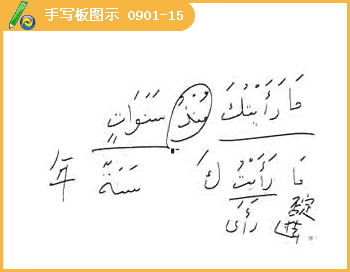 手写板图示 0901-15
مَا رَأَيْتُكَ مُنْذُ سَنَوَاتٍ
مَا رَأَيْتُ كَ سَنَةٌ 年
رَأَى 否定